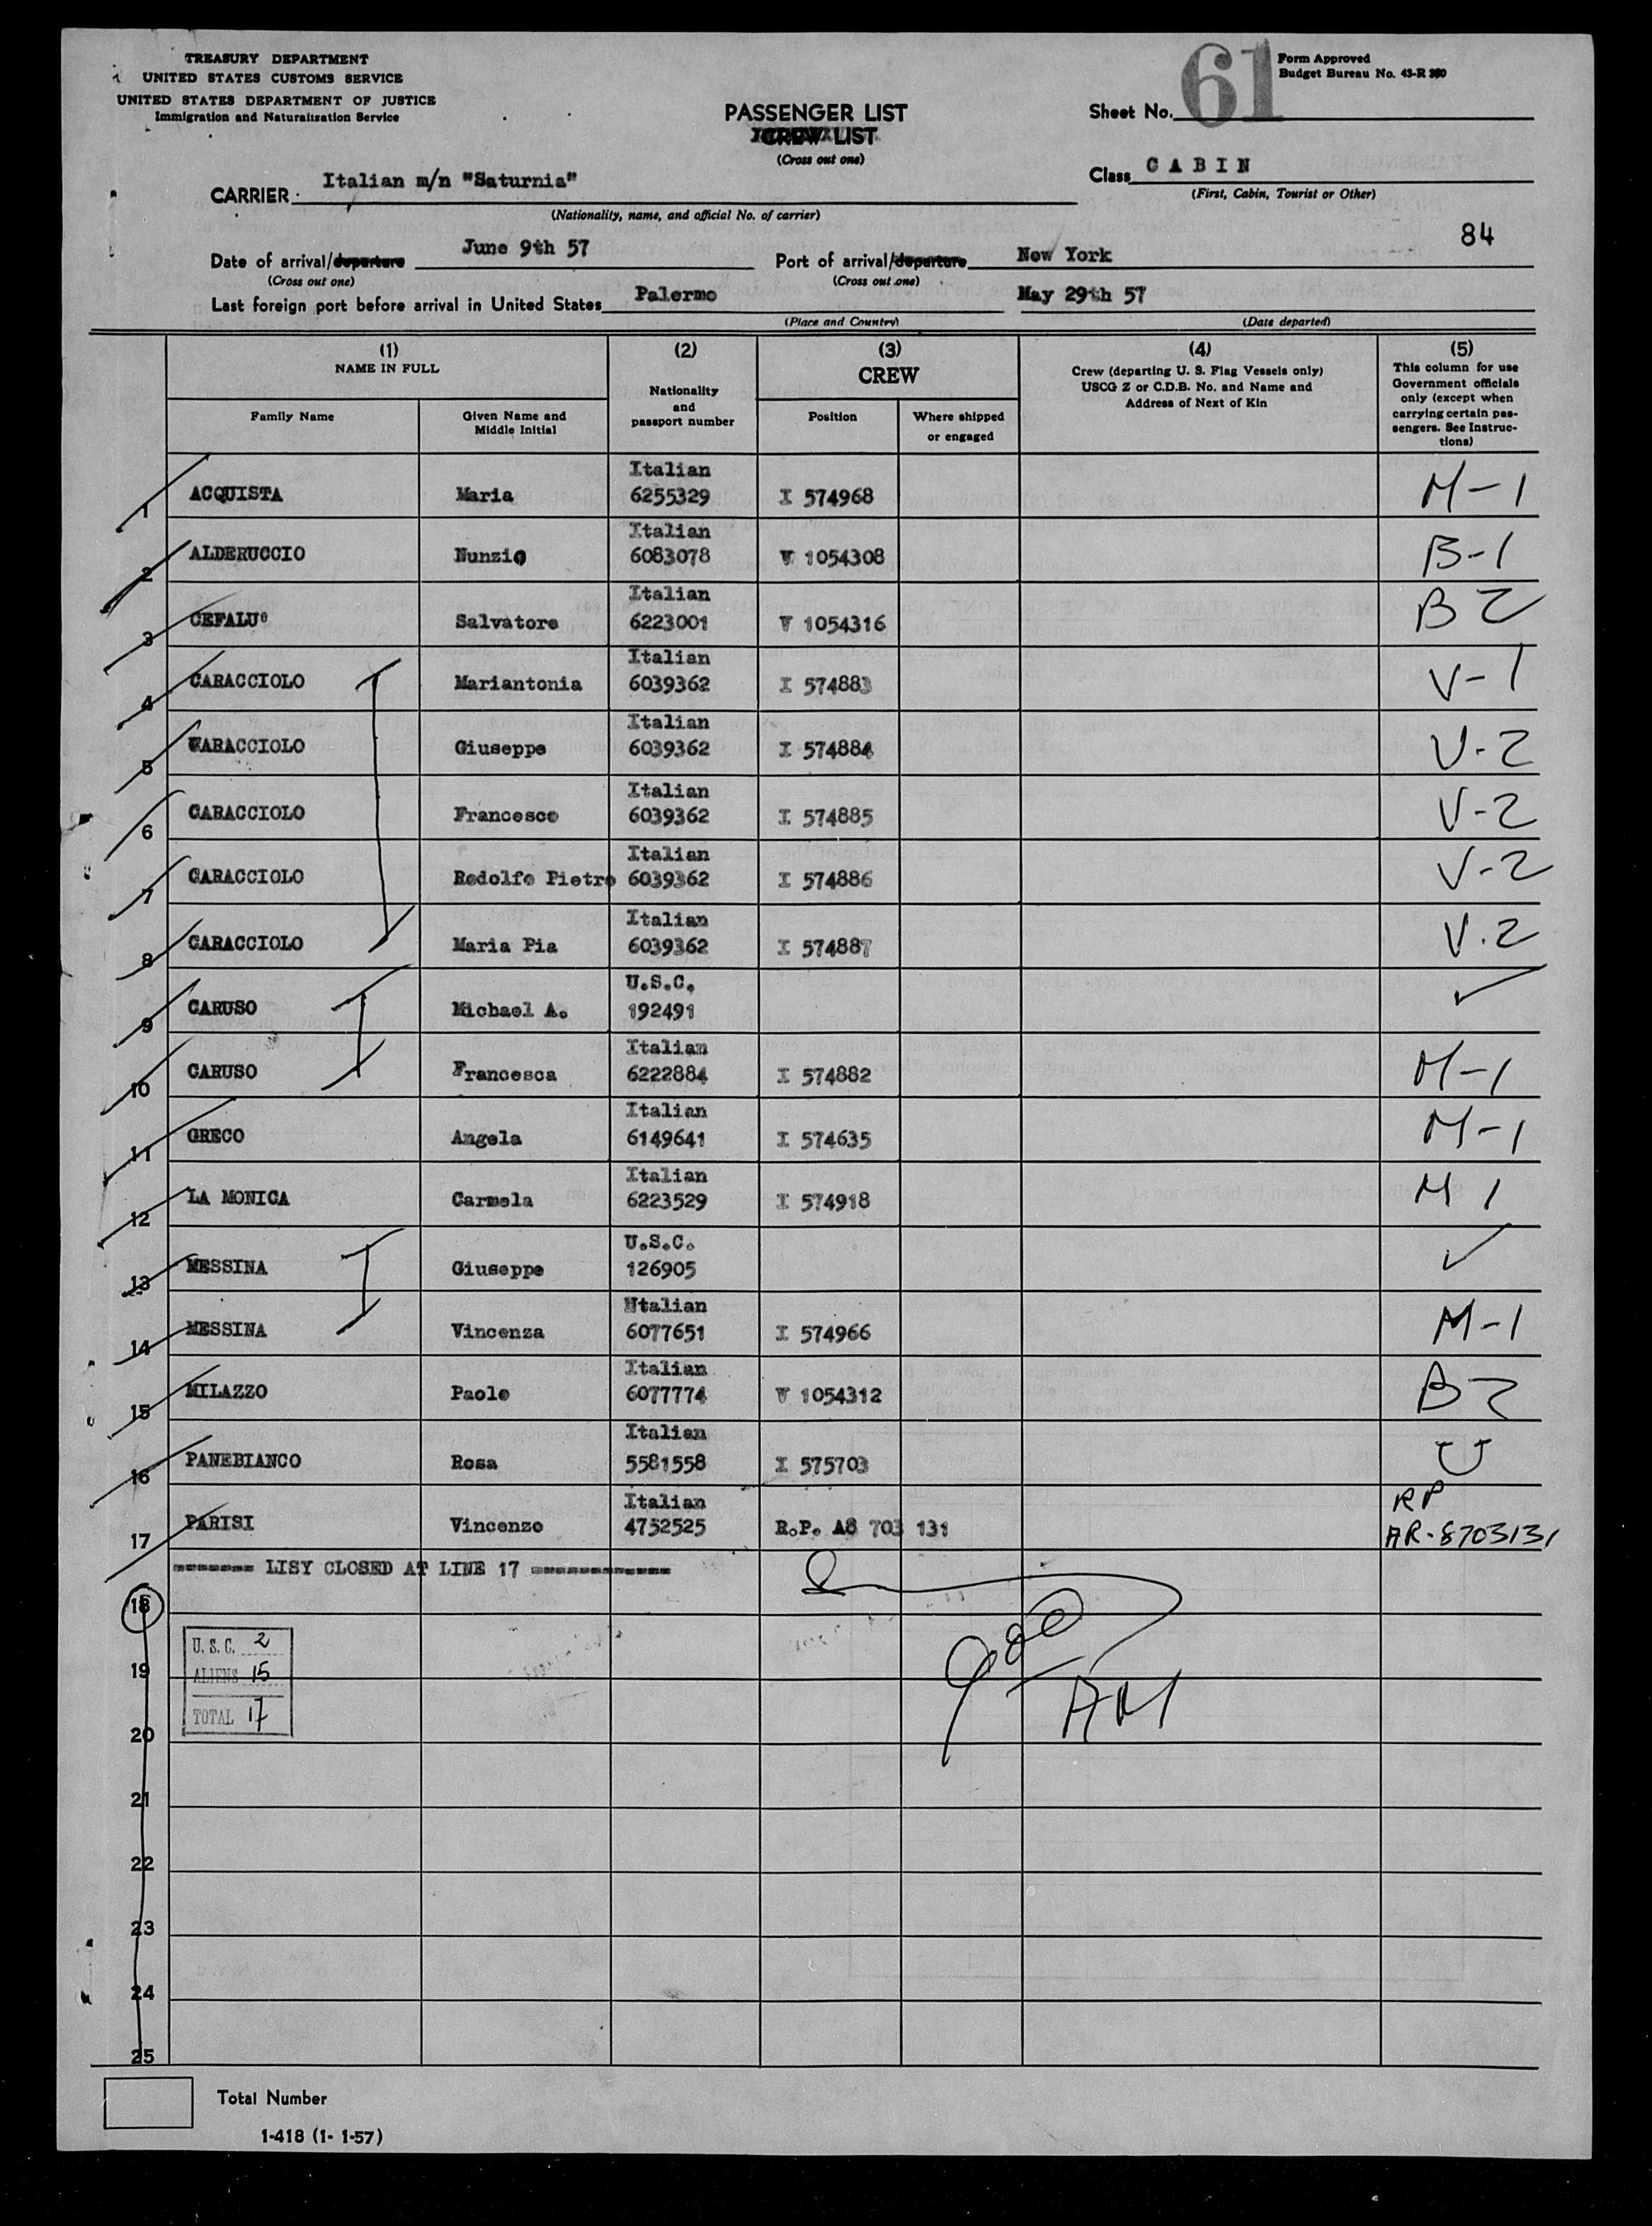 TREASURY DEPARTMENT
UNITED STATES CUSTOMS SERVICE
UNITED STATES DEPARTMENT OF JUSTICE
Immigration and Naturalization Service
Form Approved
Budget Bureau No. 43-R
61
PASSENGER LIST
CREW LIST
(Cross out one)
Sheet No.
Class CABIN
(First, Cabin, Tourist or Other)
CARRIER Italian m/n "Saturnia"
(Nationality, name, and official No. of carrier)
84
Date of arrival/departure June 9th 57 Port of arrival/departure New York
(Cross out one) (Cross out one)
Last foreign port before arrival in United States Palermo May 29th 57
(Place and Country) (Date departed)
(1) NAME IN FULL
Family Name
Given Name and Middle Initial
(2)
Nationality and passport number
(3)
CREW
Position
Where shipped or engaged
(4)
Crew (departing U. S. Flag Vessels only)
USCG Z or C.D.B. No. and Name and
Address of Next of Kin
(5)
This column for use
Government officials
only (except when
carrying certain pas-
sengers. See Instruc-
tions)
1 ACQUISTA Maria Italian 6255329 I 574968 M-1
2 ALDERUCCIO Nunzio Italian 6083078 V 1054308 B-1
3 CEFALU° Salvatore Italian 6223001 V 1054316 B 2
4 CARACCIOLO Mariantonia Italian 6039362 I 574883 V-1
5 CARACCIOLO Giuseppe Italian 6039362 I 574884 V-2
6 CARACCIOLO Francesco Italian 6039362 I 574885 V-2
7 CARACCIOLO Rodolfo Pietro Italian 6039362 I 574886 V-2
8 CARACCIOLO Maria Pia Italian 6039362 I 574887 V.2
9 CARUSO Michael A. U.S.C. 192491 ✓
10 CARUSO Francesca Italian 6222884 I 574882 M-1
11 GRECO Angela Italian 6149641 I 574635 M-1
12 LA MONICA Carmela Italian 6223529 I 574918 M 1
13 MESSINA Giuseppe U.S.C. 126905 ✓
14 MESSINA Vincenza Italian 6077651 I 574966 M-1
15 MILAZZO Paolo Italian 6077774 V 1054312 B 2
16 PANEBIANCO Rosa Italian 5581558 I 575703
17 PARISI Vincenzo Italian 4752525 R.P. A8 703 131 RP AR-8703131
------- LISY CLOSED AT LINE 17 ------------
18
U.S.C. 2
19
ALIENS 15
TOTAL 17
AM
20
21
22
23
24
25
Total Number
1-418 (1- 1-57)